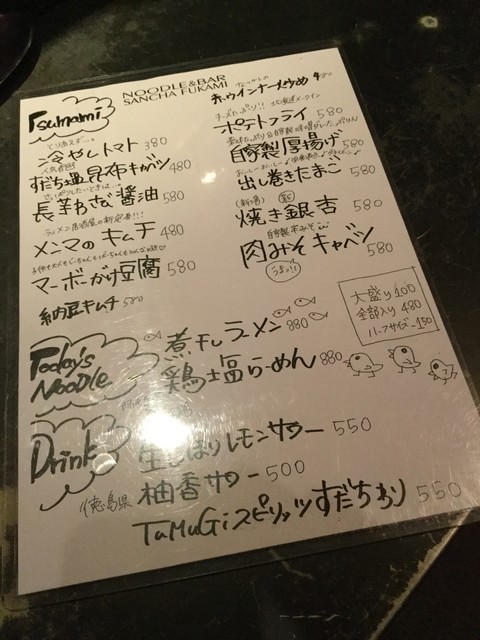 NOODLE&BAR
SANCHA FUKAMI
Tsumami
とりあえず…
冷やしトマト 380
人気者
すだち塩昆布キャベツ 480
さっぱりしたいときは…
長芋わさび醤油 580
ラーメン居酒屋の新定番!!!
メンマのキムチ 480
マーボーがけ豆腐 580
納豆キムチ 580
なつかしの
赤ウインナー炒め 480
ポテトフライ 580
自家製厚揚げ 580
出し巻きたまご 580
焼き銀杏 580
自家製肉みそ
肉みそキャベツ 580
うまっ!!
大盛り 100
全部入り 480
ハーフサイズ -150
Today's
Noodle
煮干しラーメン 880
鶏塩らーめん 880
Drink
生しぼりレモンサワー 550
徳島県 柚香サワー 500
TaMuGiスピリッツすだちわり 550